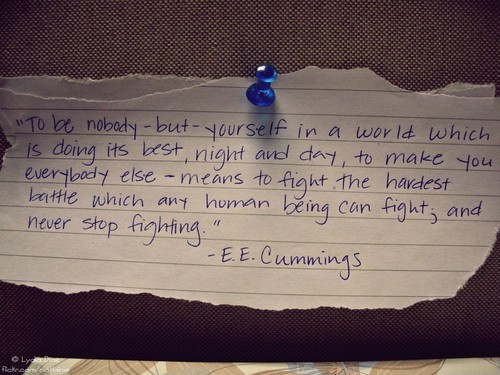 "To be nobody-but-yourself in a world which
is doing its best, night and day, to make you
everybody else - means to fight the hardest
battle which any human being can fight; and
never stop fighting."
-E.E. Cummings
© Lydia
flickr.com/